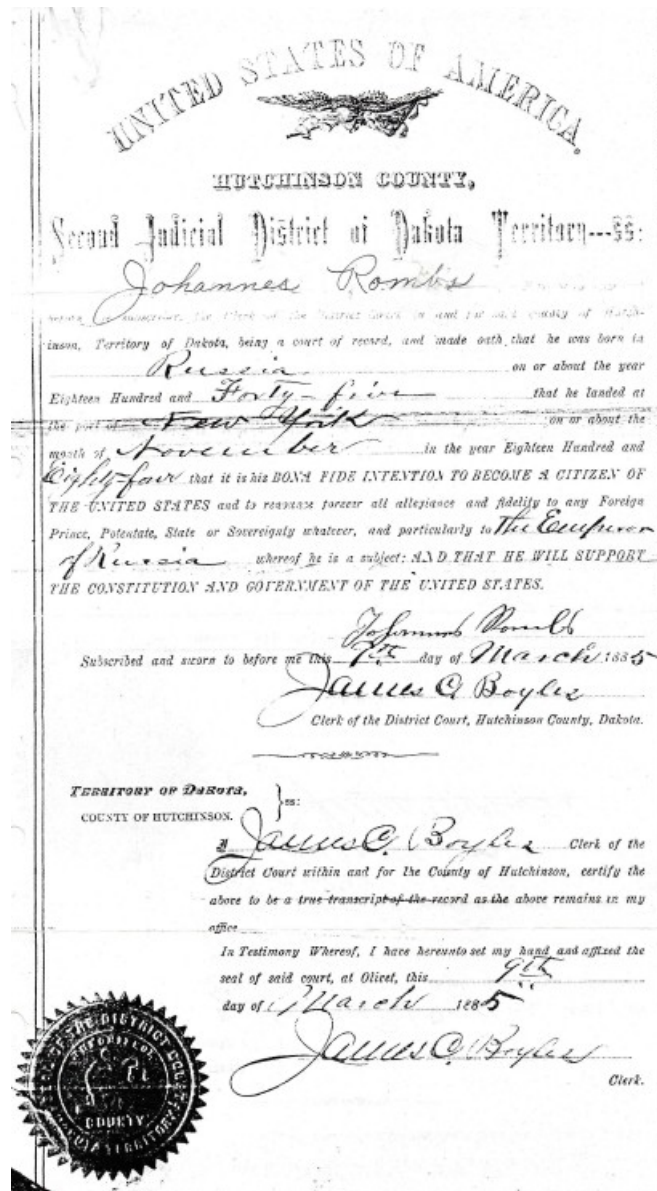 UNITED STATES OF AMERICA.
HUTCHINSON COUNTY,
Second Judicial District of Dakota Territory---ss:
Johannes Rombs
the Clerk of the District Court in and for said county of Hutch-
inson, Territory of Dakota, being a court of record, and made oath that he was born in
Russia on or about the year
Eighteen Hundred and Forty-five that he landed at
the port of New York on or about the
month of November in the year Eighteen Hundred and
Eighty-four that it is his BONA FIDE INTENTION TO BECOME A CITIZEN OF
THE UNITED STATES and to renounce forever all allegiance and fidelity to any Foreign
Prince, Potentate, State or Sovereignty whatever, and particularly to The Emperor
of Russia whereof he is a subject: AND THAT HE WILL SUPPORT
THE CONSTITUTION AND GOVERNMENT OF THE UNITED STATES.
Johannes Rombs
Subscribed and sworn to before me this 7th day of March 1885
James C Boyles
Clerk of the District Court, Hutchinson County, Dakota.
TERRITORY OF DAKOTA, } ss:
COUNTY OF HUTCHINSON.
I James C. Boyles Clerk of the
District Court within and for the County of Hutchinson, certify the
above to be a true transcript of the record as the above remains in my
office
In Testimony Whereof, I have hereunto set my hand and affixed the
seal of said court, at Olivet, this 9th
day of March 1885
James C. Boyles
Clerk.
SEAL OF THE DISTRICT COURT
COUNTY
DAKOTA TERRITORY